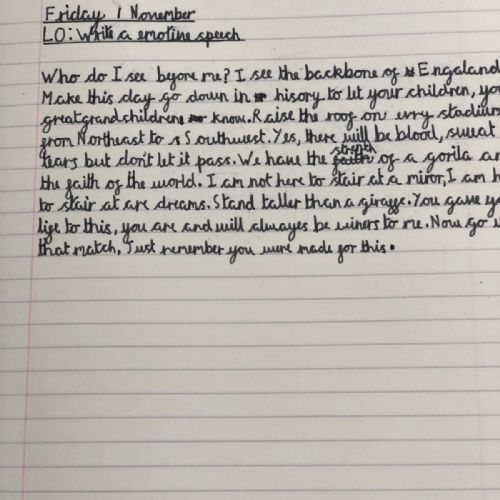 Friday 1 November
LO: Write a emotine speech
Who do I see byore me? I see the backbone of Engaland
Make this day go down in hisory to let your children, yo
greatgrandchildrene know. Raise the roof on evry stadium
fron Northeast to Southwest. Yes, there will be blood, sweat
tears but don't let it pass. We have the strength of a gorila an
the faith of the world. I am not here to stair at a miror, I am h
to stair at are dreams. Stand taller than a giraffe. You gave yo
life to this, you are and will alwayes be winers to me. Now go
that match, Just remember you were made for this.